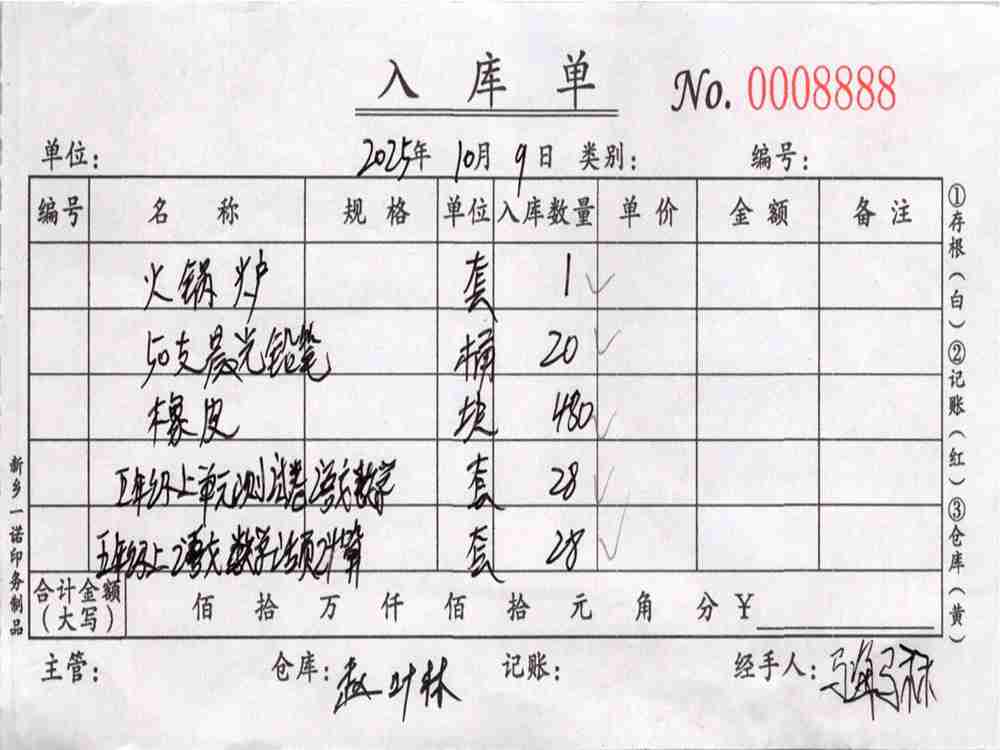 入库单 No. 0008888
单位： 2025年 10月 9日 类别： 编号：
编号 名称 规格 单位 入库数量 单价 金额 备注
火锅炉 套 1
50支晨光铅笔 桶 20
橡皮 块 480
五年级上单元测试卷语文数学 套 28
五年级上语文数学 套 28
合计金额（大写） 佰 拾 万 仟 佰 拾 元 角 分 ¥
主管： 仓库：赵叶林 记账： 经手人：
①存根（白）②记账（红）③仓库（黄）
新乡一诺印务制品